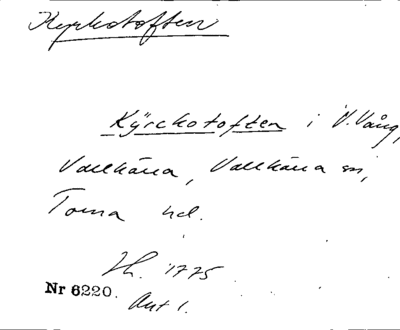 Kyrkotoften
Kÿrckotoften i V. Vång,
Vallkärra, Vallkärra sn,
Torna hd.
Lh. 1775.
Nr 6220. Akt 1.